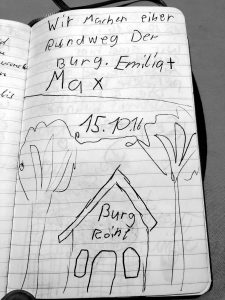 Wir Machen einer
Rundweg Der
Burg. Emili +
Max
15.10 16
Burg